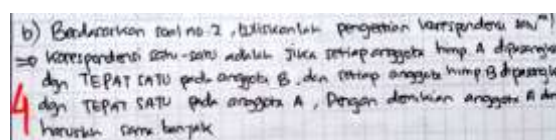 b) Berdasarkan soal no 2, tuliskanlah pengertian korespondensi satu-
=> Korespondensi satu-satu adalah jika setiap anggota himp A dipasangk
dgn TEPAT SATU pada anggota B, dan setiap anggota himp B dipasangk
4 dgn TEPAT SATU pada anggota A, Dengan demikian anggota A dan
haruslah sama banyak